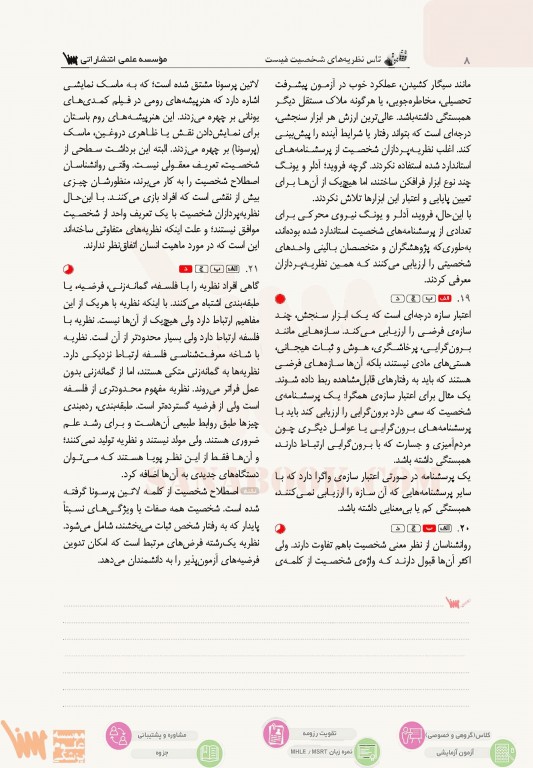 ۸
تاس نظریه‌های شخصیت فیست
مؤسسه علمی انتشاراتی سنا
مانند سیگار کشیدن، عملکرد خوب در آزمون پیشرفت
تحصیلی، مخاطره‌جویی، یا هرگونه ملاک مستقل دیگر
همبستگی داشته‌باشد. عالی‌ترین ارزش هر ابزار سنجشی،
درجه‌ای است که بتواند رفتار یا شرایط آینده را پیش‌بینی
کند. اغلب نظریه‌پردازان شخصیت از پرسشنامه‌های
استاندارد شده استفاده نکردند. گرچه فروید؛ آدلر و یونگ
چند نوع ابزار فرافکن ساختند، اما هیچ‌یک از آن‌ها برای
تعیین پایایی و اعتبار این ابزارها تلاش نکردند.
با این‌حال، فروید، آدلر و یونگ نیروی محرکی برای
تعدادی از پرسشنامه‌های شخصیت استاندارد شده بوده‌اند،
به‌طوری‌که پژوهشگران و متخصصان بالینی واحدهای
شخصیتی را ارزیابی می‌کنند که همین نظریه‌پردازان
معرفی کردند.
۱۹. الف ب ج د
اعتبار سازه درجه‌ای است که یک ابزار سنجش، چند
سازه‌ی فرضی را ارزیابی می‌کند. سازه‌هایی مانند
برون‌گرایی، پرخاشگری، هوش و ثبات هیجانی،
هستی‌های مادی نیستند، بلکه آن‌ها سازه‌های فرضی
هستند که باید به رفتارهای قابل‌مشاهده ربط داده شوند.
یک مثال برای اعتبار سازه‌ی همگرا: یک پرسشنامه‌ی
شخصیت که سعی دارد برون‌گرایی را ارزیابی کند باید با
پرسشنامه‌های برون‌گرایی یا عوامل دیگری چون
مردم‌آمیزی و جسارت که با برون‌گرایی ارتباط دارند،
همبستگی داشته باشد.
یک پرسشنامه در صورتی اعتبار سازه‌ی واگرا دارد که با
سایر پرسشنامه‌هایی که آن سازه را ارزیابی نمی‌کنند،
همبستگی کم یا بی‌معنایی داشته باشد.
۲۰. الف ب ج د
روانشناسان از نظر معنی شخصیت باهم تفاوت دارند. ولی
اکثر آن‌ها قبول دارند که واژه‌ی شخصیت از کلمه‌ی
لاتین پرسونا مشتق شده است؛ که به ماسک نمایشی
اشاره دارد که هنرپیشه‌های رومی در فیلم کمدی‌های
یونانی بر چهره می‌زدند. این هنرپیشه‌های روم باستان
برای نمایش‌دادن نقش یا ظاهری دروغین، ماسک
(پرسونا) بر چهره می‌زدند. البته این برداشت سطحی از
شخصیت، تعریف معقولی نیست. وقتی روانشناسان
اصطلاح شخصیت را به کار می‌برند، منظورشان چیزی
بیش از نقشی است که افراد بازی می‌کنند. با این‌حال
نظریه‌پردازان شخصیت با یک تعریف واحد از شخصیت
موافق نیستند؛ و علت اینکه نظریه‌های متفاوتی ساخته‌اند
این است که در مورد ماهیت انسان اتفاق‌نظر ندارند.
۲۱. الف ب ج د
گاهی افراد نظریه را با فلسفه، گمانه‌زنی، فرضیه، یا
طبقه‌بندی اشتباه می‌کنند. با اینکه نظریه با هریک از این
مفاهیم ارتباط دارد ولی هیچ‌یک از آن‌ها نیست. نظریه با
فلسفه ارتباط دارد ولی بسیار محدودتر از آن است. نظریه
با شاخه معرفت‌شناسی فلسفه ارتباط نزدیکی دارد.
نظریه‌ها به گمانه‌زنی متکی هستند، اما از گمانه‌زنی بدون
عمل فراتر می‌روند. نظریه مفهوم محدودتری از فلسفه
است ولی از فرضیه گسترده‌تر است. طبقه‌بندی، رده‌بندی
چیزها طبق روابط طبیعی آن‌هاست و برای رشد علم
ضروری هستند. ولی مولد نیستند و نظریه تولید نمی‌کنند؛
و آن‌ها فقط از این نظر پویا هستند که می‌توان
دستگاه‌های جدیدی به آن‌ها اضافه کرد.
اصطلاح شخصیت از کلمه لاتین پرسونا گرفته
شده است. شخصیت همه صفات یا ویژگی‌های نسبتاً
پایدار که به رفتار شخص ثبات می‌بخشند، شامل می‌شود.
نظریه یک‌رشته فرض‌های مرتبط است که امکان تدوین
فرضیه‌های آزمون‌پذیر را به دانشمندان می‌دهد.
کلاس(گروهی و خصوصی)
آزمون آزمایشی
تقویت رزومه
نمره زبان MSRT / MHLE
مشاوره و پشتیبانی
جزوه